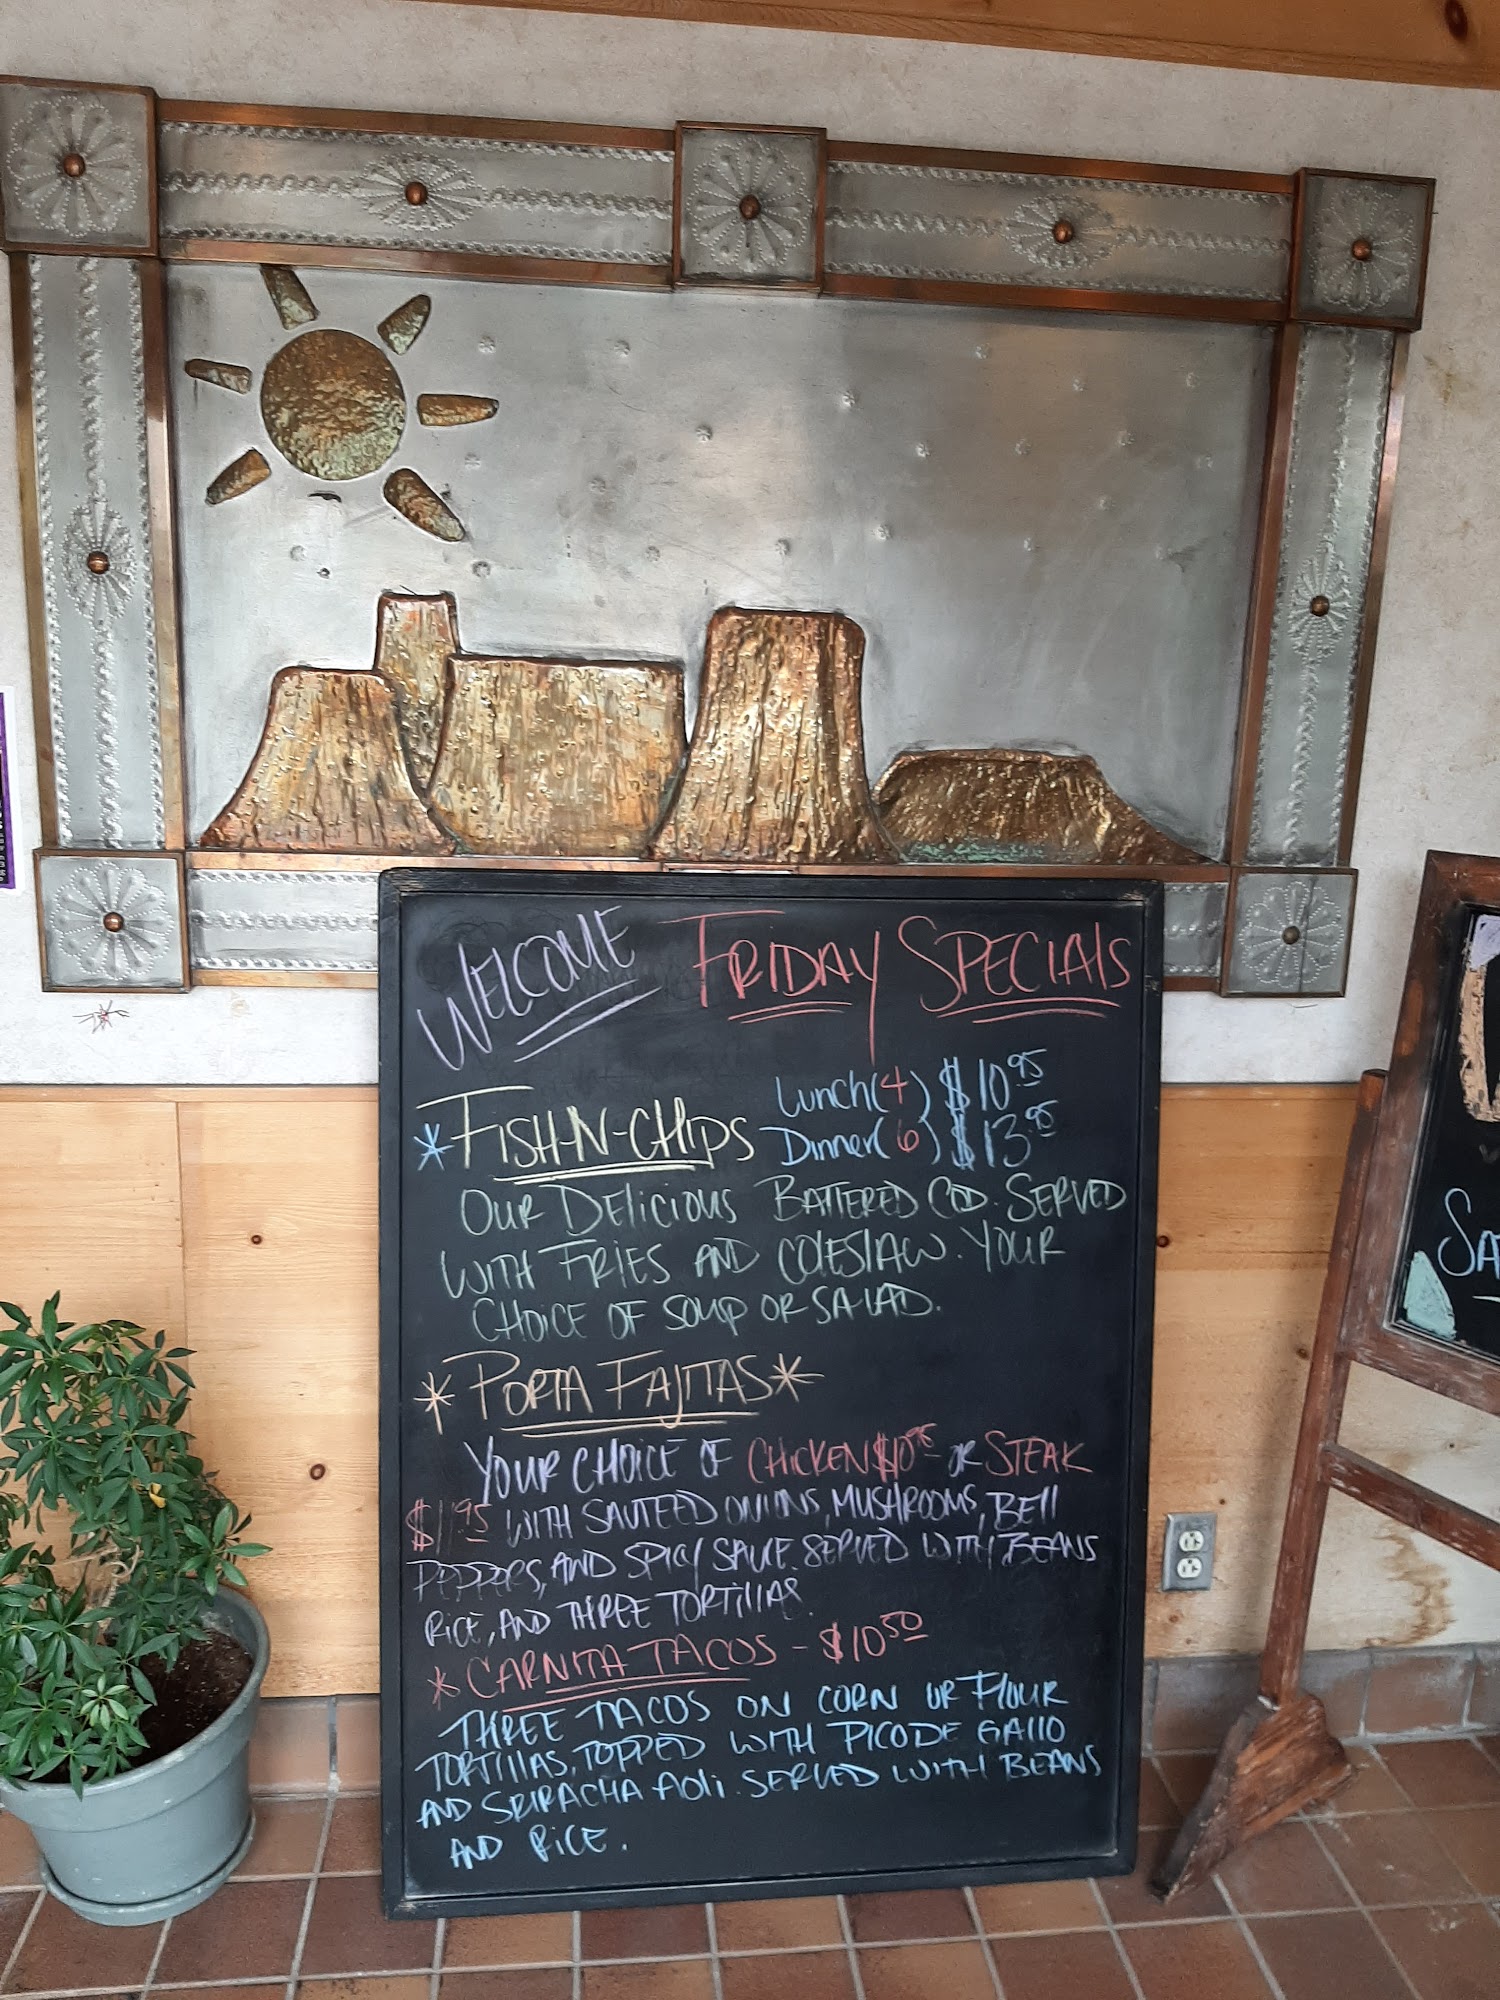 WELCOME FRIDAY SPECIALS
*FISH-N-CHIPS Lunch(4) $10.95
Dinner(6) $13.95
OUR DELICIOUS BATTERED COD. SERVED
WITH FRIES AND COLESLAW. YOUR
CHOICE OF SOUP OR SALAD.
*PORTA FAJITAS*
YOUR CHOICE OF CHICKEN $10.95 OR STEAK
$11.95 WITH SAUTEED ONIONS, MUSHROOMS, BELL
PEPPERS, AND SPICY SAUCE. SERVED WITH BEANS
RICE, AND THREE TORTILLAS.
*CARNITA TACOS - $10.50
THREE TACOS ON CORN OR FLOUR
TORTILLAS, TOPPED WITH PICODE GALLO
AND SRIRACHA AOLI. SERVED WITH BEANS
AND RICE.